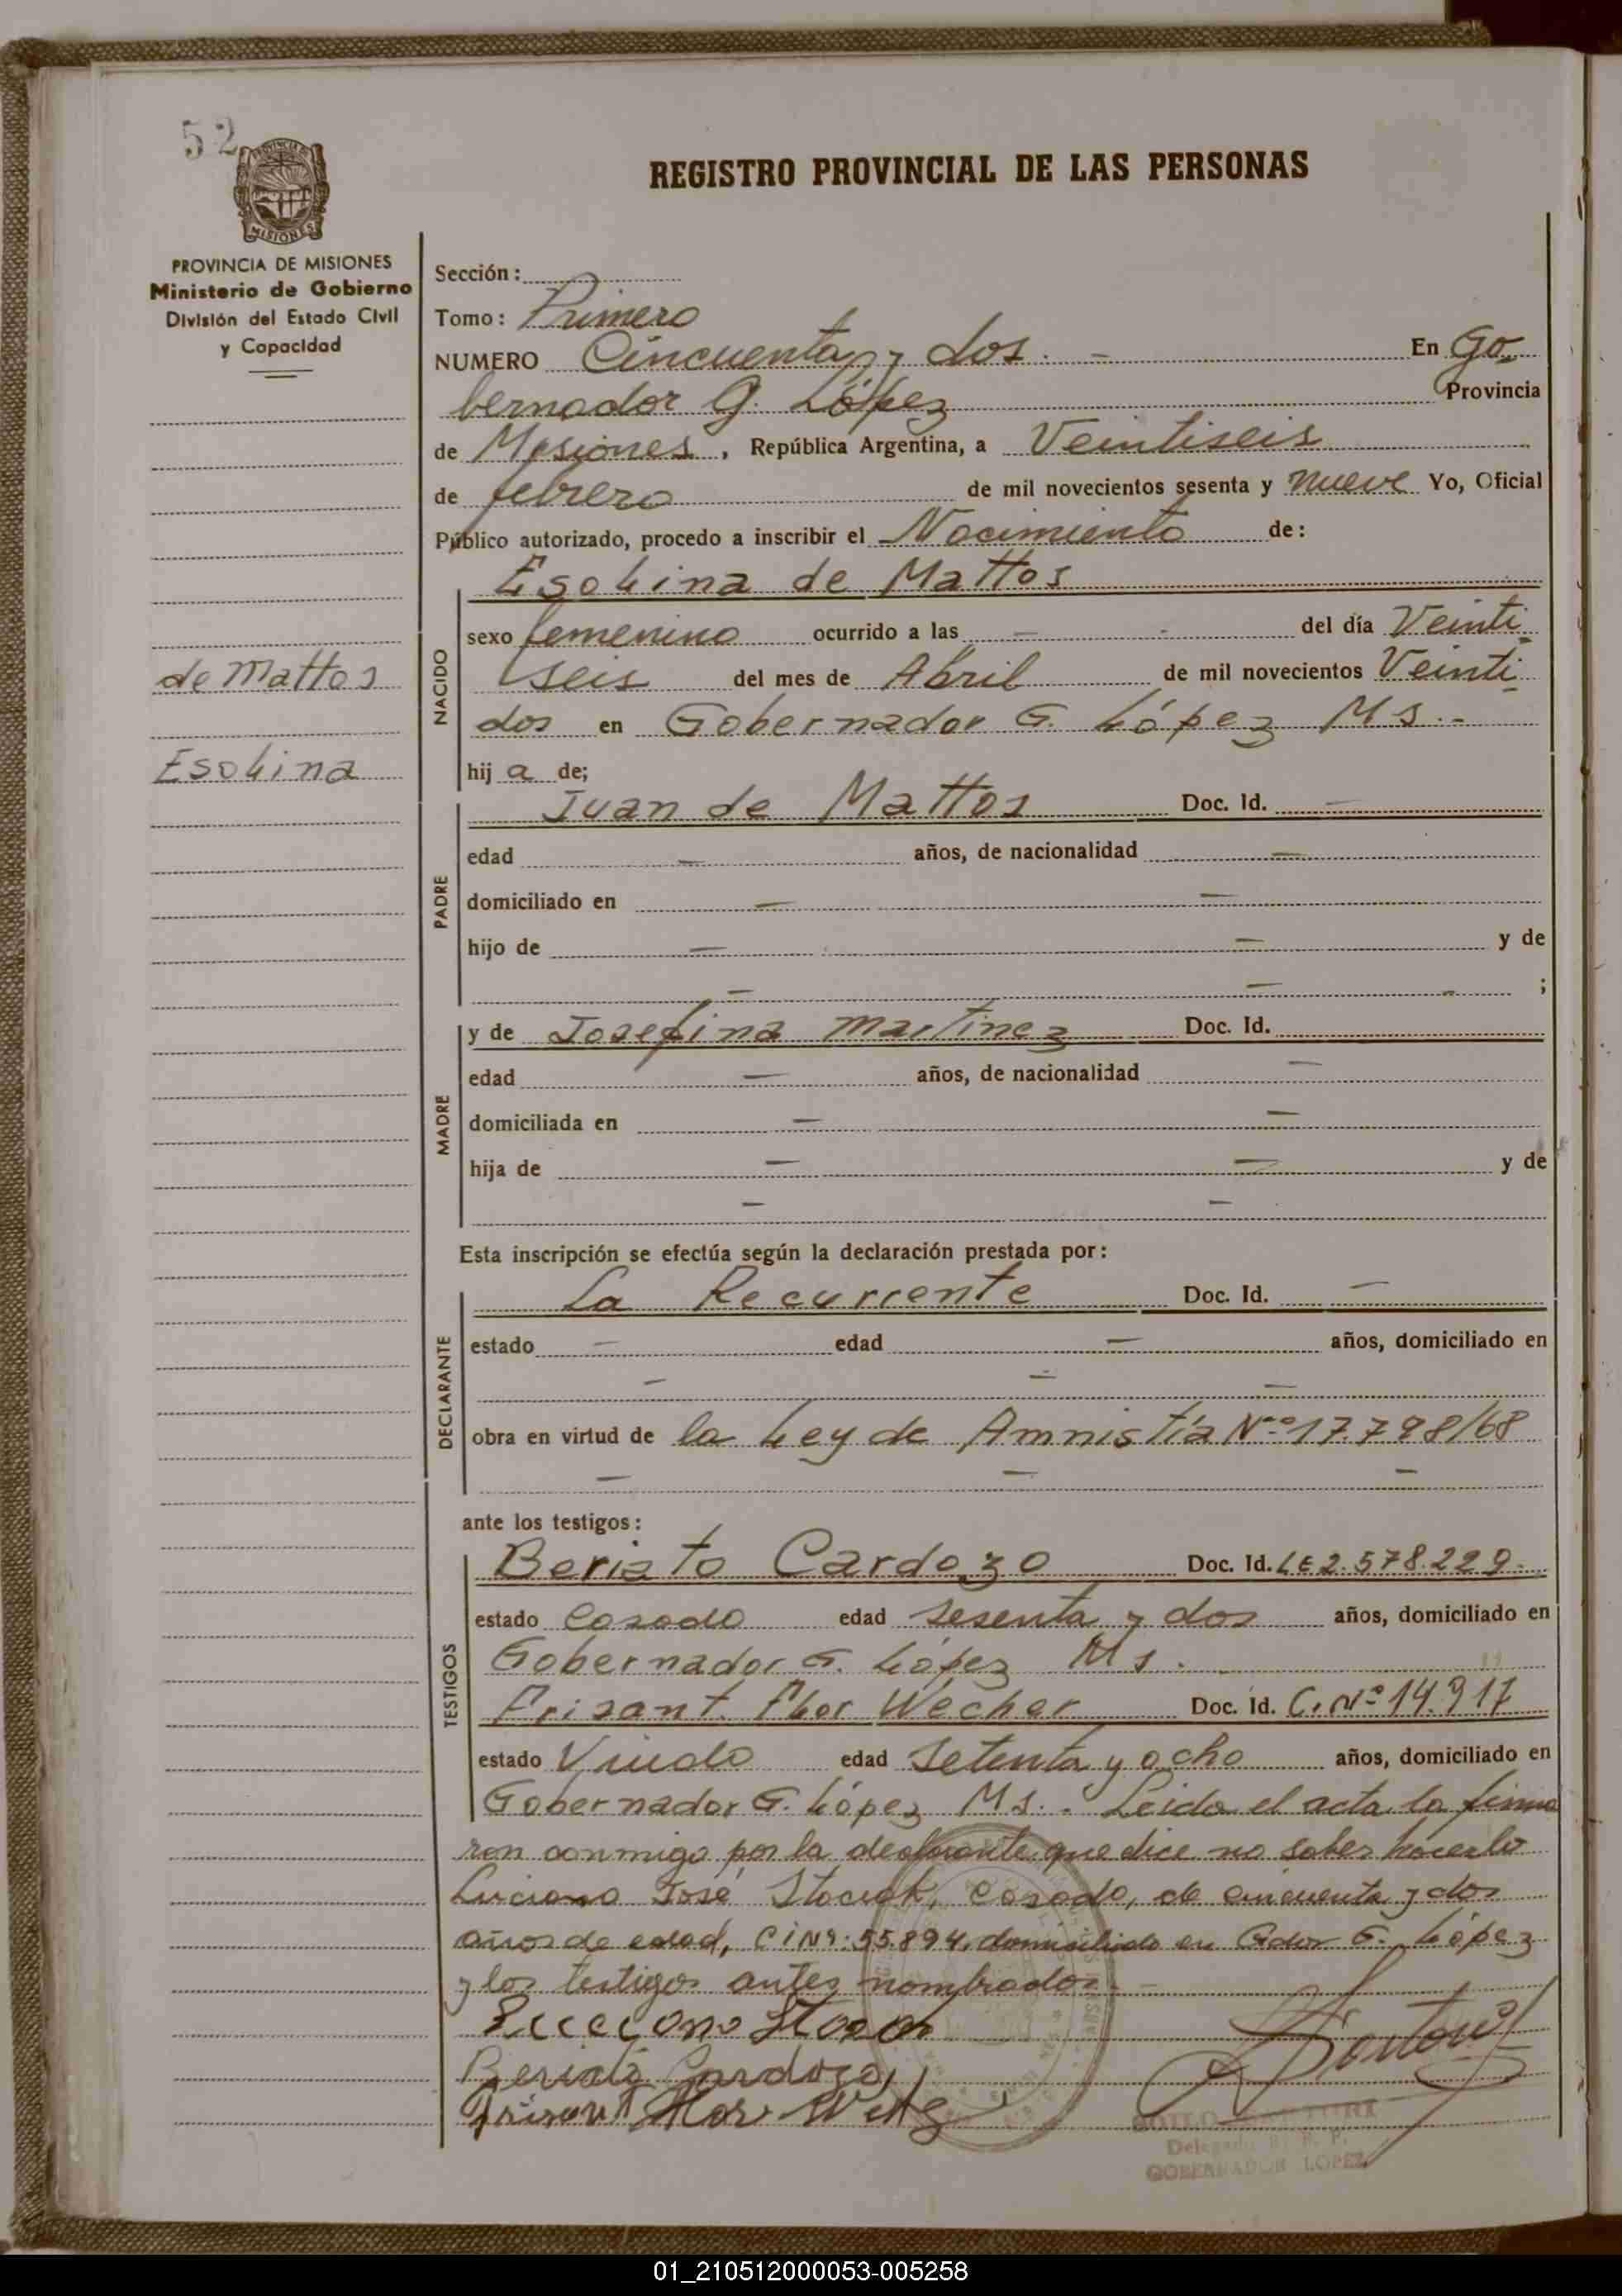 52
REGISTRO PROVINCIAL DE LAS PERSONAS
PROVINCIA DE MISIONES
Ministerio de Gobierno
División del Estado Civil
y Capacidad
Sección:
Tomo: Primero
NUMERO Cincuenta y dos. - En Go-
bernador G. López Provincia
de Misiones, República Argentina, a Veintiseis
de febrero de mil novecientos sesenta y nueve Yo, Oficial
Público autorizado, procedo a inscribir el Nacimiento de:
Esolina de Mattos
NACIDO
sexo femenino ocurrido a las - - del día Veinti-
seis del mes de Abril de mil novecientos Veinti-
dos en Gobernador G. López Ms.-
hij a de;
de Mattos
Esolina
PADRE
Juan de Mattos Doc. Id. -
edad - años, de nacionalidad -
domiciliado en - -
hijo de - - y de
- - - ;
MADRE
y de Josefina Martinez Doc. Id.
edad - años, de nacionalidad -
domiciliada en - -
hija de - - y de
- -
Esta inscripción se efectúa según la declaración prestada por:
DECLARANTE
La Recurrente Doc. Id. -
estado - edad - años, domiciliado en
- - -
obra en virtud de la Ley de Amnistía Nº 17.798/68
- - -
ante los testigos:
TESTIGOS
Beriato Cardozo Doc. Id. LE 2.578.229.-
estado Casado edad sesenta y dos años, domiciliado en
Gobernador G. López Ms.
Frisant. Flor Wecher Doc. Id. C. Nº 14.917
estado Viudo edad Setenta y ocho años, domiciliado en
Gobernador G. López Ms.. Leida el acta la firma
ron conmigo por la declarante que dice no saber hacerlo
Luciano José, Casado, de cincuenta y dos
años de edad, CiNº: 55.894, domiciliado en Gdor G. López
y los testigos antes nombrados.-
Beriato Cardozo
Delegado R. P. P.
GOBERNADOR LOPEZ
01_210512000053-005258